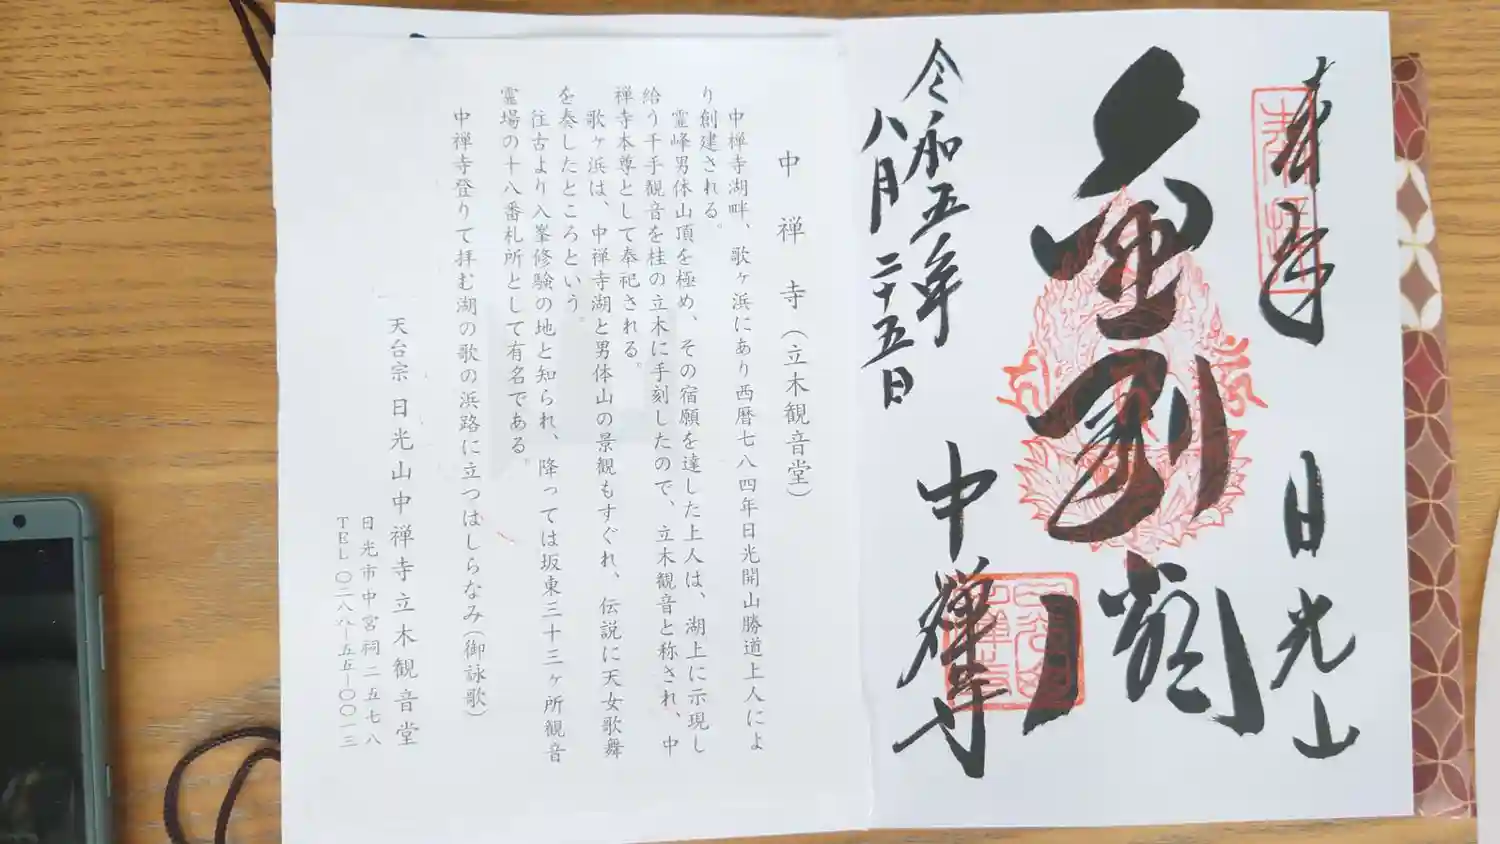 奉拝
日光山
令和五年
八月二十五日
中禪寺
中禅寺（立木観音堂）
中禅寺湖畔、歌ヶ浜にあり西暦七八四年日光開山勝道上人によ
り創建される。
霊峰男体山頂を極め、その宿願を達した上人は、湖上に示現し
給う千手観音を桂の立木に手刻したので、立木観音と称され、中
禅寺本尊として奉祀される。
歌ヶ浜は、中禅寺湖と男体山の景観もすぐれ、伝説に天女歌舞
を奏したところという。
往古より入峯修験の地と知られ、降っては坂東三十三ヶ所観音
霊場の十八番札所として有名である。
中禅寺登りて拝む湖の歌の浜路に立つはしらなみ（御詠歌）
天台宗 日光山中禅寺立木観音堂
日光市中宮祠二五七八
TEL〇二八八―五五―〇〇一三